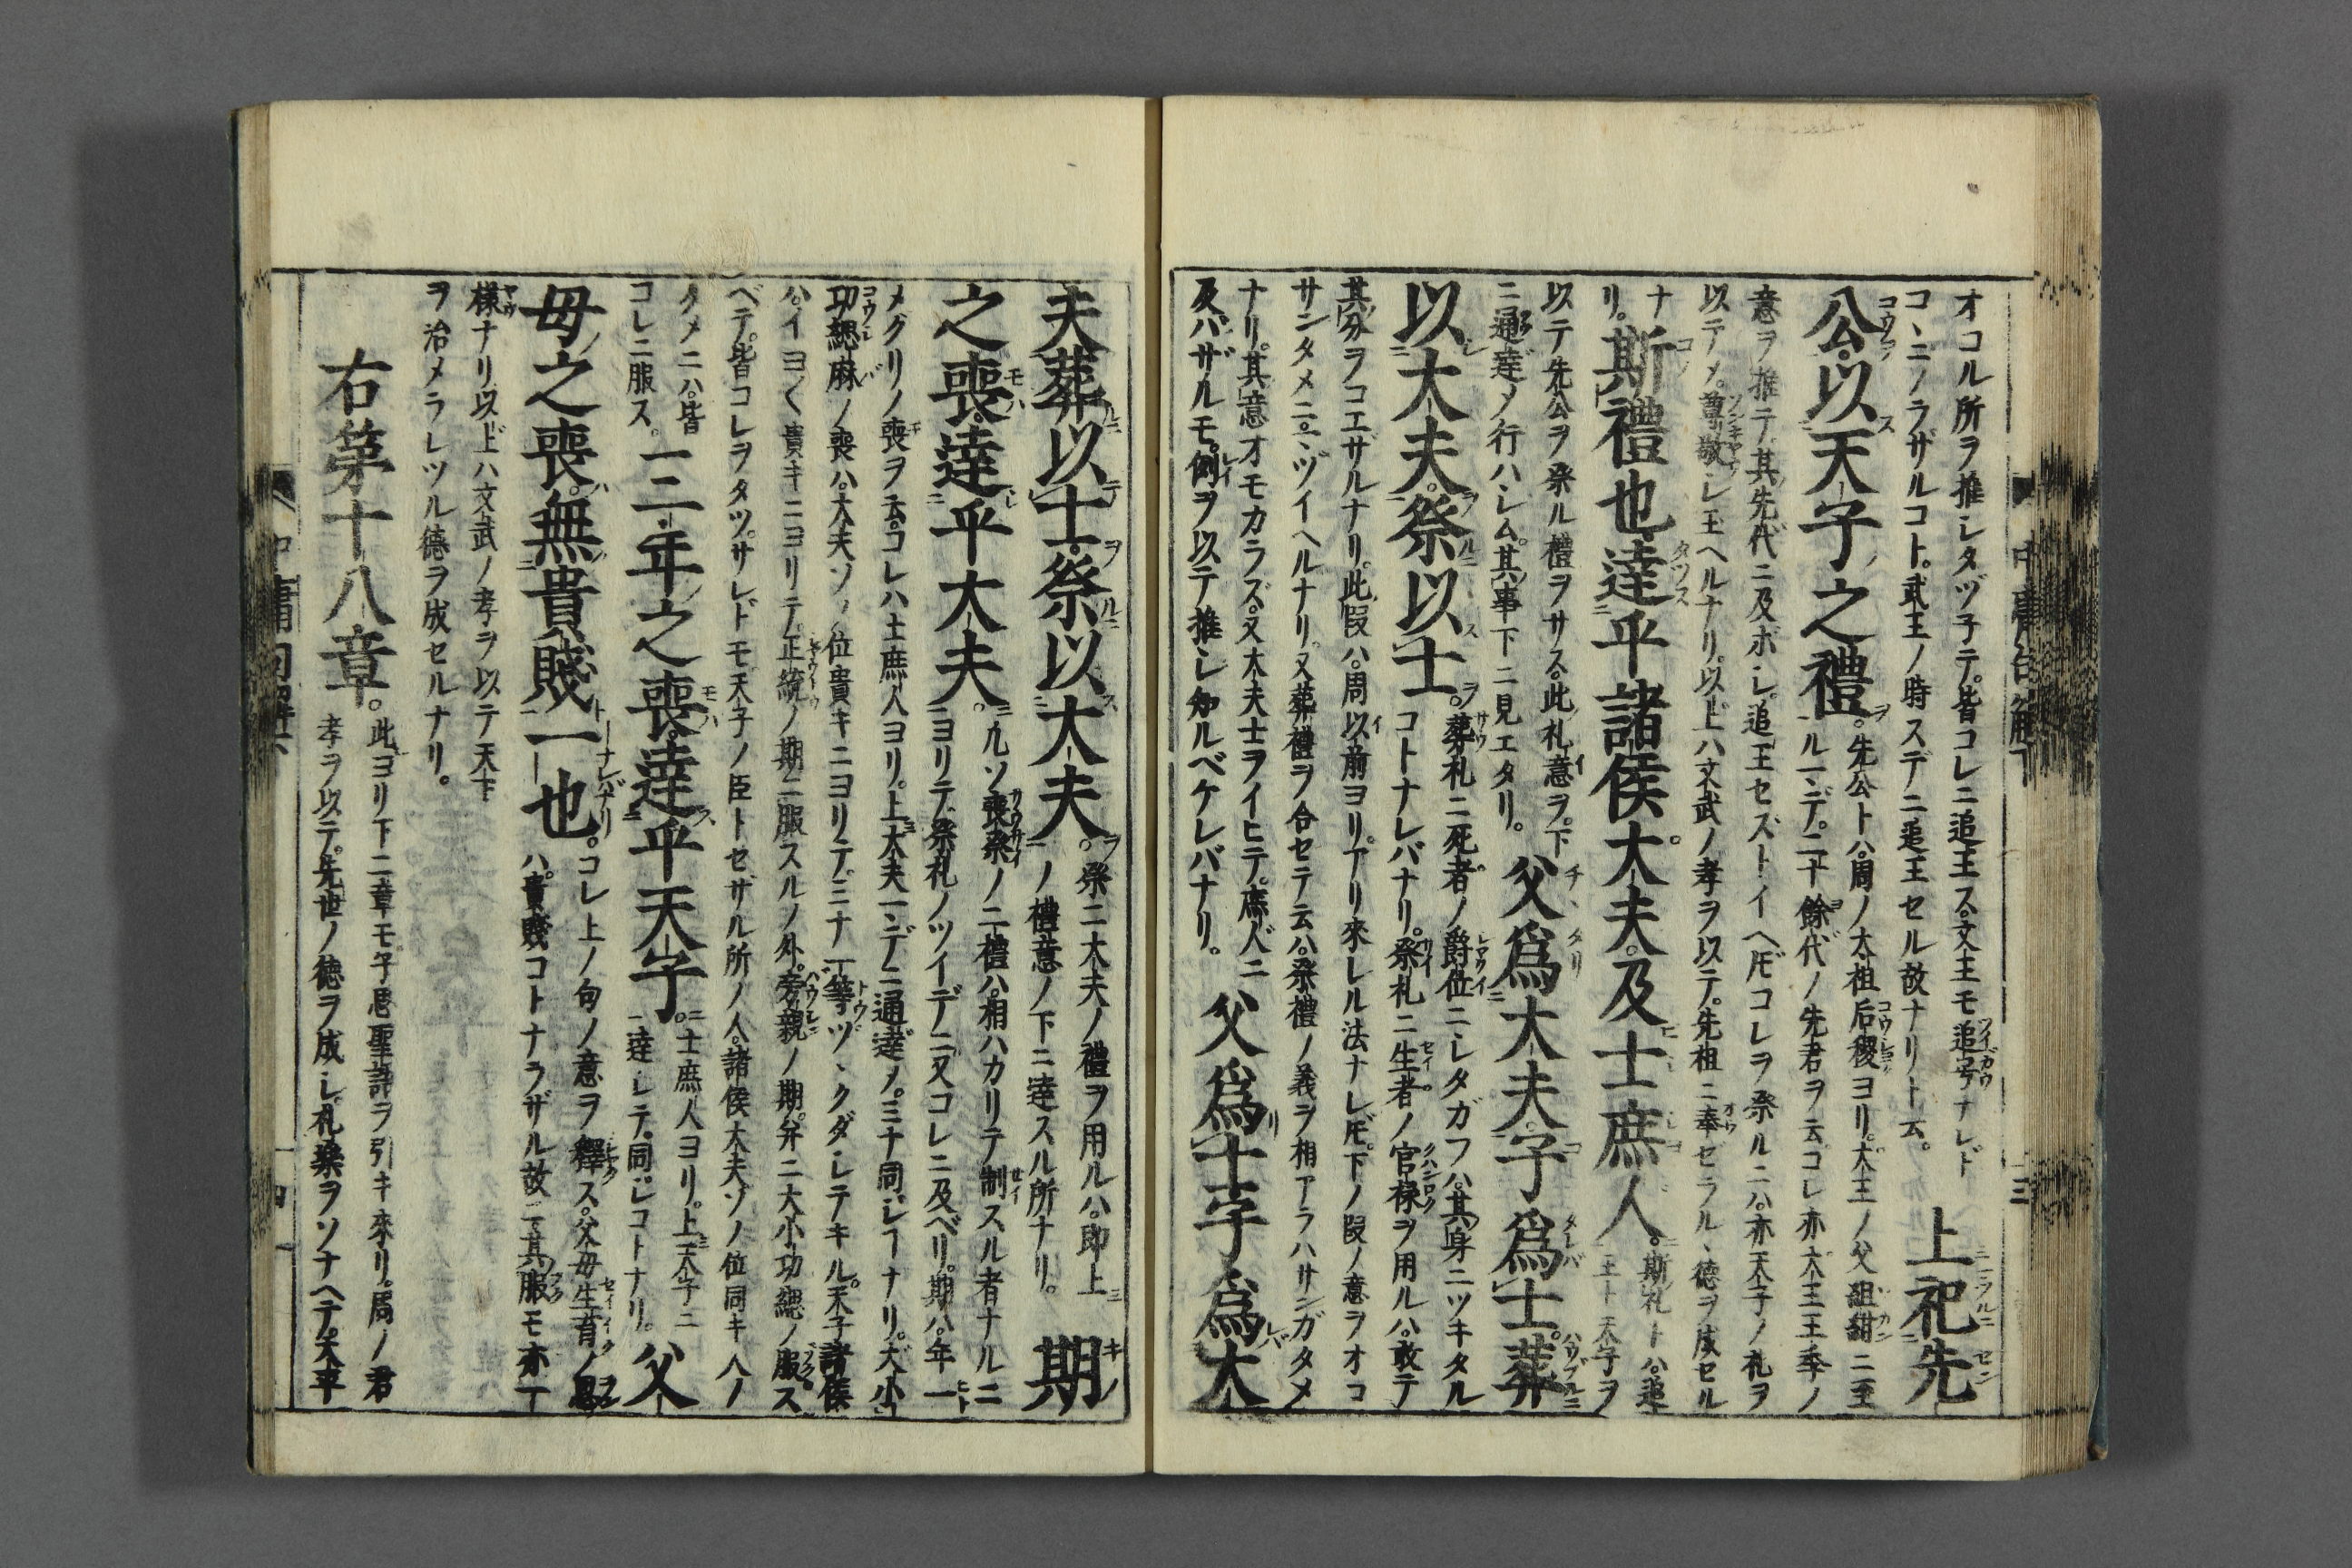 オコル所ヲ推シタヅ子テ。皆コレニ追王ス。文王モ追号ナレド
コヽニノラザルコト。武王ノ時スデニ追王セル故ナリト云。
上祀先
公。以天子之禮。
先公トハ。周ノ太祖后稷ヨリ。大王ノ父組紺ニ至
ルマデ。二十餘代ノ先君ヲ云。コレ亦大王王季ノ
意ヲ推テ。其先代ニ及ボシ。追王セズトイヘ𪜈コレヲ祭ルニハ。亦天子ノ礼ヲ
以テメ。尊敬シ玉ヘルナリ。以上ハ文武ノ孝ヲ以テ。先祖ニ奉セラルヽ德ヲ成セル
ナリ。
斯禮也。達乎諸侯大夫。及士庶人。
斯礼トハ。追
王ト天子ヲ
以テ先公ヲ祭ル禮ヲサス。此礼意ヲ。下
ニ通達メ行ハシム。其事下ニ見エタリ。
父爲大夫。子爲士。葬
以大夫。祭以士。
葬礼ニ死者ノ爵位ニシタガフハ。其身ニツキタル
コトナレバナリ。祭礼ニ生者ノ官禄ヲ用ルハ。敢テ
其分ヲコエザルナリ。此段ハ。周以前ヨリアリ來レル法ナレ𪜈。下ノ段ノ意ヲオコ
サンタメニ。ミヅイヘルナリ。又葬禮ヲ合セテ云ハ。祭禮ノ義ヲ相アラハサンガタメ
ナリ。其意オモカラズ。又大夫士ヲイヒテ。庶人ニ
及バザルモ。例ヲ以テ推シ知ルベケレバナリ。
父爲士。子爲大
夫。葬以士。祭以大夫。
祭ニ大夫ノ禮ヲ用ルハ。即上
ノ禮意ノ下ニ達スル所ナリ。
期
之喪。達乎大夫。
凡ソ喪祭ノ二禮ハ。相ハカリテ制スル者ナルニ
ヨリテ。祭礼ノツイデニ。又コレニ及ベリ。期ハ。年一
メグリノ喪ヲ云。コレハ士庶人ヨリ。上大夫マデニ通達メ。ミナ同ジコナリ。大小
功緦麻ノ喪ハ。大夫ソノ位貴キニヨリテ。ミナ一等ヅヽクダシテキル。天子諸侯
ハ。イヨ〱貴キニヨリテ。正統ノ期ニ服スルノ外。旁親ノ期。并ニ大小功緦ノ服ス
ベテ。皆コレヲタツ。サレドモ天子ノ臣トセザル所ノ人。諸侯大夫ソノ位同キ人ノ
タメニハ。皆
コレニ服ス。
三年之喪。達乎天子。
士庶人ヨリ。上天子ニ
達シテ。同ジコトナリ。
父
母之喪。無貴賤一也。
コレ上ノ句ノ意ヲ釋ス。父母生育ノ恩
ハ。貴賤コトナラザル故ニ。其服モ亦一
樣ナリ。以上ハ文武ノ孝ヲ以テ天下
ヲ治メラレツル德ヲ成セルナリ。
右第十八章。
此ヨリ下二章モ。子思聖語ヲ引キ來リ。周ノ君
孝ヲ以テ。先世ノ德ヲ成シ。礼樂ヲソナヘテ。天下